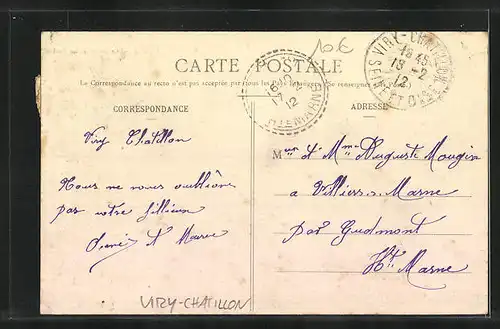 10 €
CARTE POSTALE
La Correspondance au recto n'est pas acceptée par tous les Pays
CORRESPONDANCE
ADRESSE
VIRY-CHATILLON
18 45
18-2
12
SEINE ET OISE
16
17
12
Viry Chatillon
Nous ne nous oublions
par votre filleux
et Marie
Mr et Mme Auguste Mougin
a Villiers s. Marne
par Gudmont
Hte Marne
VIRY-CHATILLON